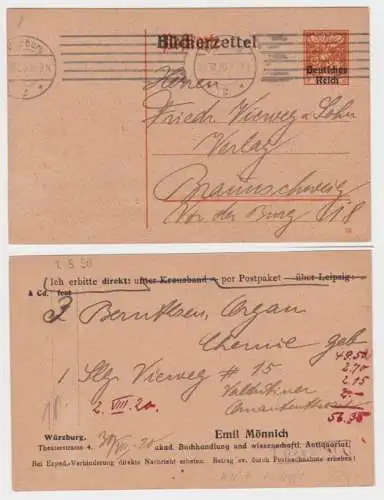 Bücherzettel
Deutsches
Reich
Herren
Friedr. Vieweg u. Sohn
Verlag
Braunschweig
Vor der Burg 18
2. 8. 20
Ich erbitte direkt: unter Kreuzband – per Postpaket – über Leipzig:
à Cd. fest
3 Bernthsen, Organ
Chemie geb
49.50
1 Slg. Vieweg # 15
2.70
Valentiner
2.15
2. VIII. 20.
56.35
Würzburg,
Emil Mönnich
Theaterstrasse 4.
30/VII. 20
akad. Buchhandlung und wissenschaftl. Antiquariat.
Bei Exped.-Verhinderung direkte Nachricht erbeten. Betrag ev. durch Postnachnahme erheben!